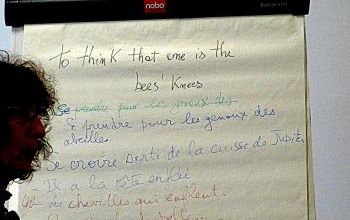 nobo
To think that one is the
bees' knees
Se prendre pour les genoux des
Se prendre pour les genoux des
abeilles.
Se croire sorti de la cuisse de Jupiter
a la tête enflée
chevilles qui enflent.